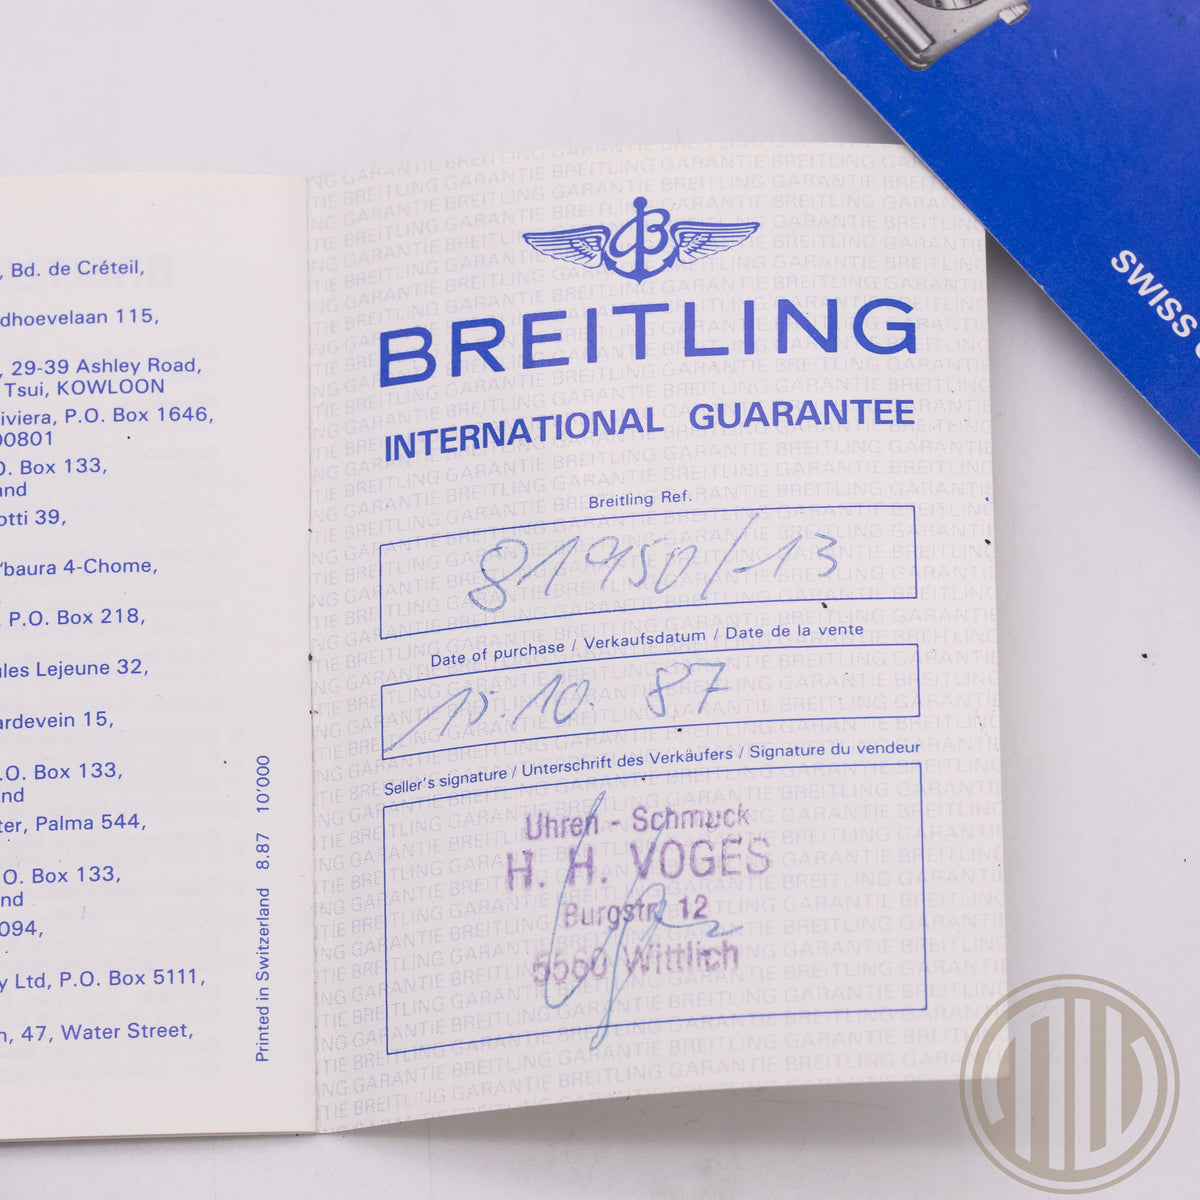 , Bd. de Créteil,
dhoevelaan 115,
, 29-39 Ashley Road,
Tsui, KOWLOON
iviera, P.O. Box 1646,
00801
O. Box 133,
and
otti 39,
'baura 4-Chome,
P.O. Box 218,
ules Lejeune 32,
ardevein 15,
.O. Box 133,
nd
ter, Palma 544,
O. Box 133,
nd
094,
y Ltd, P.O. Box 5111,
n, 47, Water Street,
Printed in Switzerland 8.87 10'000
B
BREITLING
INTERNATIONAL GUARANTEE
Breitling Ref.
81950/-13
Date of purchase / Verkaufsdatum / Date de la vente
15.10.87
Seller's signature / Unterschrift des Verkäufers / Signature du vendeur
Uhren - Schmuck
H. H. VOGES
Burgstr. 12
5560 Wittlich
SWISS